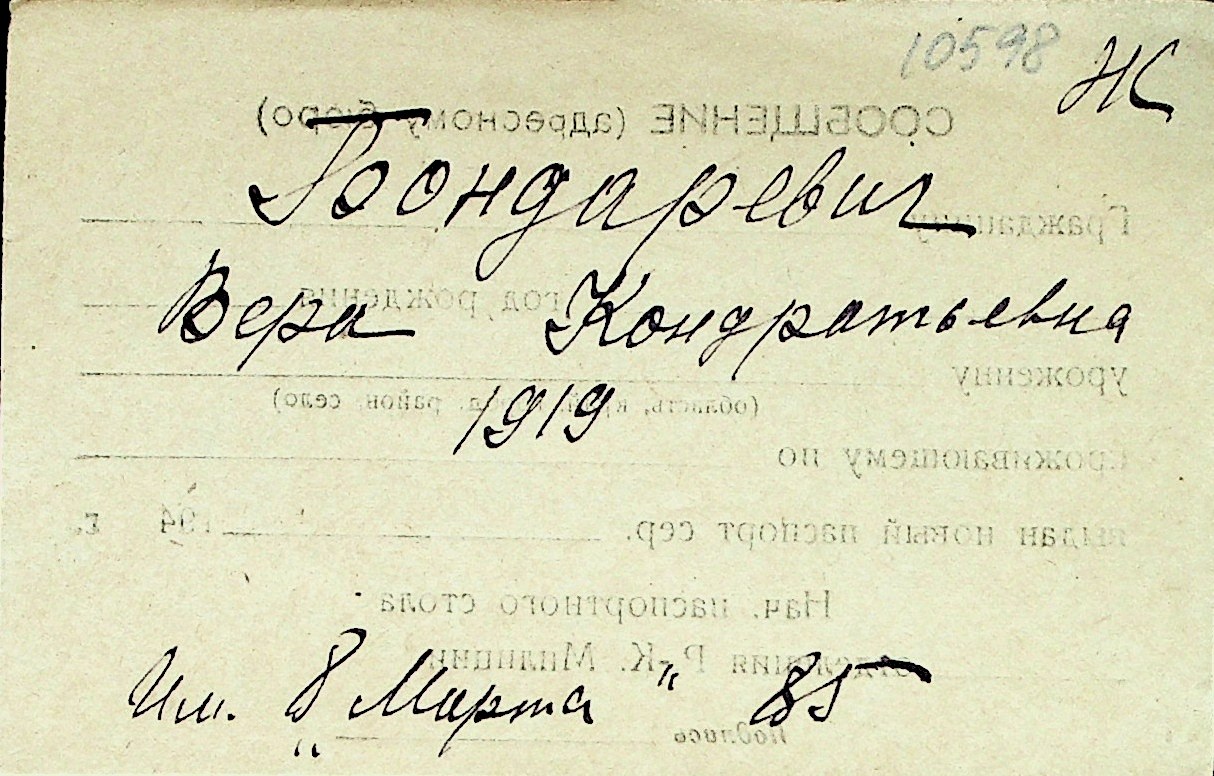 10598 Ж
Бондаревич
Вера Кондратьевна
1919
Им. "8 Марта" 85
СООБЩЕНИЕ (адресному бюро)
Гражданину
год рождения
уроженцу
(область, край, город, район, село)
проживающему по
выдан новый паспорт сер. 194 г.
Нач. паспортного стола
отделения Р.-К. Милиции
Подпись